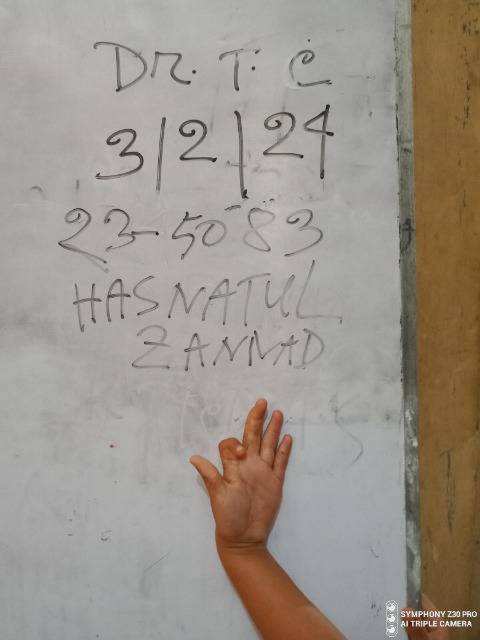 DR. T. C
3/2/24
23-5083
HASNATUL
ZANNAD
SYMPHONY Z30 PRO
AI TRIPLE CAMERA